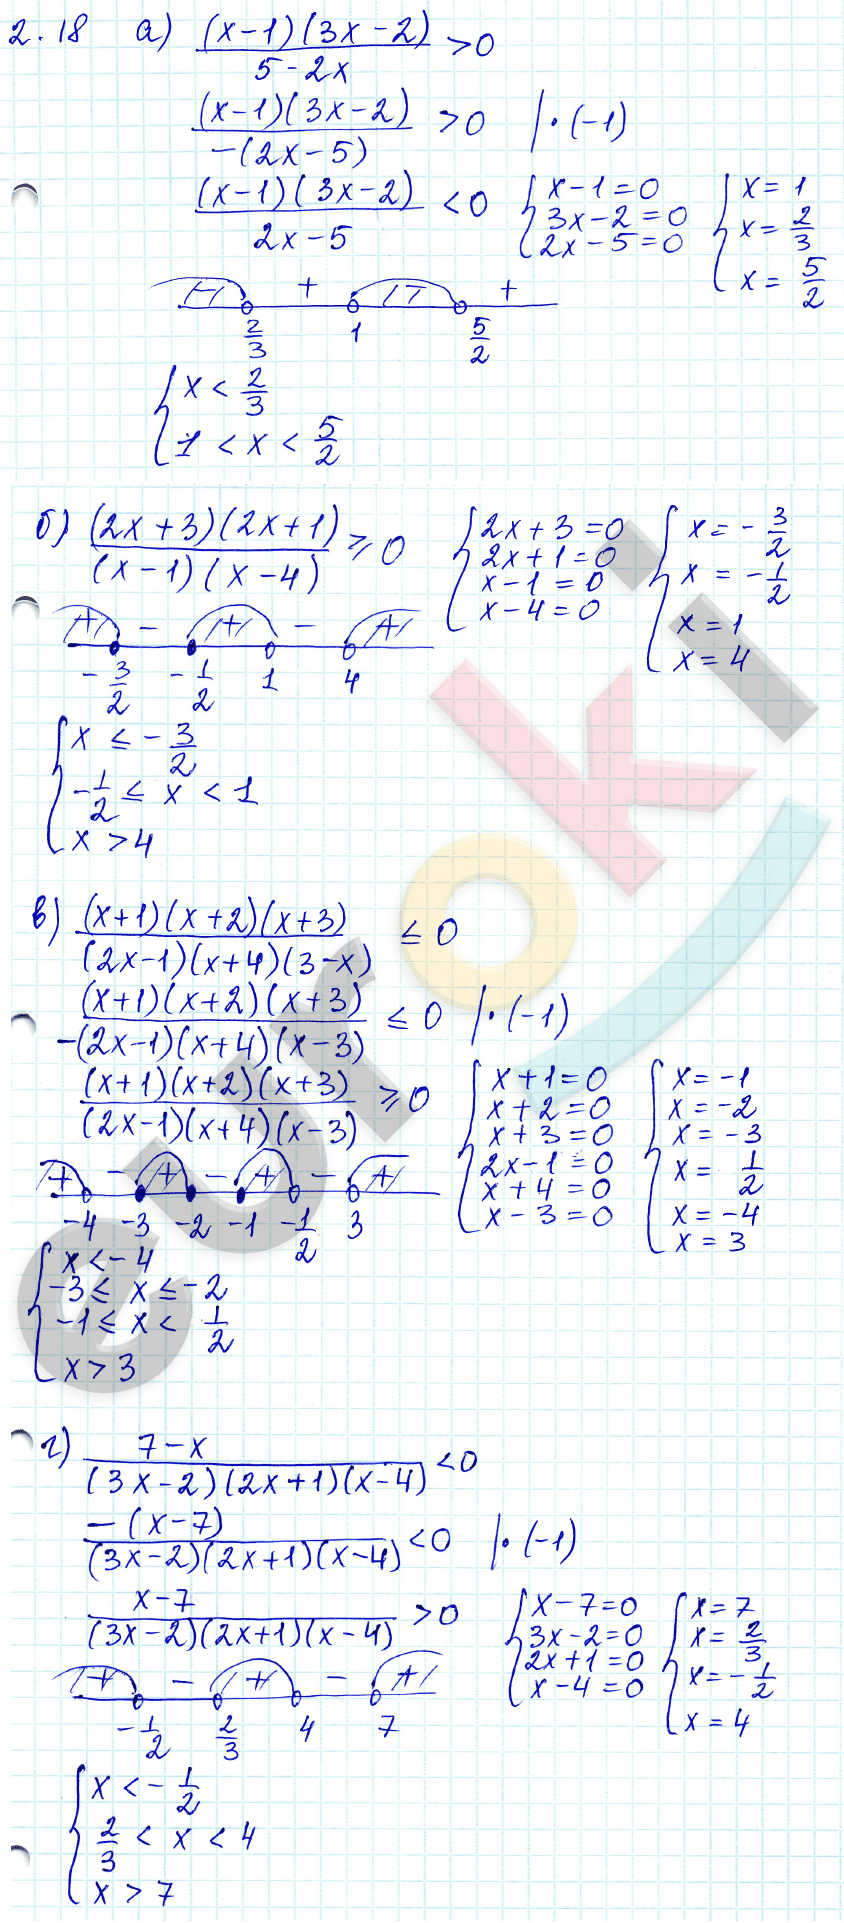 2.18 а) (x-1)(3x-2)/(5-2x) >0
(x-1)(3x-2)/(-(2x-5)) >0 |·(-1)
(x-1)(3x-2)/(2x-5) <0 { x-1=0 3x-2=0 2x-5=0 { x=1 x=2/3 x=5/2
- + - +
2/3 1 5/2
{ x < 2/3
1 < x < 5/2
б) (2x+3)(2x+1)/((x-1)(x-4)) ≥ 0 { 2x+3=0 2x+1=0 x-1=0 x-4=0 { x=-3/2 x=-1/2 x=1 x=4
+ - + - +
-3/2 -1/2 1 4
{ x ≤ -3/2
-1/2 ≤ x < 1
x > 4
в) (x+1)(x+2)(x+3)/((2x-1)(x+4)(3-x)) ≤ 0
(x+1)(x+2)(x+3)/(-(2x-1)(x+4)(x-3)) ≤ 0 |·(-1)
(x+1)(x+2)(x+3)/((2x-1)(x+4)(x-3)) ≥ 0 { x+1=0 x+2=0 x+3=0 2x-1=0 x+4=0 x-3=0 { x=-1 x=-2 x=-3 x=1/2 x=-4 x=3
+ - + - + - +
-4 -3 -2 -1 -1/2 3
{ x<-4
-3 ≤ x ≤ -2
-1 ≤ x < 1/2
x > 3
г) (7-x)/((3x-2)(2x+1)(x-4)) <0
-(x-7)/((3x-2)(2x+1)(x-4)) <0 |·(-1)
(x-7)/((3x-2)(2x+1)(x-4)) >0 { x-7=0 3x-2=0 2x+1=0 x-4=0 { x=7 x=2/3 x=-1/2 x=4
+ - + - +
-1/2 2/3 4 7
{ x < -1/2
2/3 < x < 4
x > 7
euroki